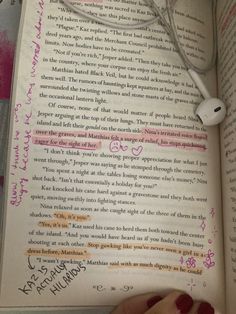 nothing was sacred to Kaz
they'd taken over
"Plague," Kaz replied. "The first
dred years ago, and the Merchant Council prohibited
limits. Now bodies have to be cremated."
"Not if you're rich," Jesper added. "Then they take you to
in the country, where your corpse can enjoy the fresh air."
Matthias hated Black Veil, but he could acknowledge it had
them well. The rumors of hauntings kept squatters at bay, and the mist
surrounded the twisting willows and stone masts of the graves obscured
the occasional lantern light.
Of course, none of that would matter if people heard Nina and
Jesper arguing at the top of their lungs. They must have returned to the
island and left their gondel on the north side. Nina's irritated voice floated
over the graves, and Matthias felt a surge of relief, his steps quickening,
eager for the sight of her.
"I don't think you're showing proper appreciation for what I just
went through," Jesper was saying as he stomped through the cemetery.
"You spent a night at the tables losing someone else's money," Nina
shot back. "Isn't that essentially a holiday for you?"
Kaz knocked his cane hard against a gravestone and they both went
quiet, moving swiftly into fighting stances.
Nina relaxed as soon as she caught sight of the three of them in the
shadows. "Oh, it's you."
"Yes, it's us." Kaz used his cane to herd them both toward the center
of the island. "And you would have heard us if you hadn't been busy
shouting at each other. Stop gawking like you've never seen a girl in a
dress before, Matthias."
"I wasn't gawking," Matthias said with as much dignity as he could
KAZ IS
ACTUALLY
HILARIOUS